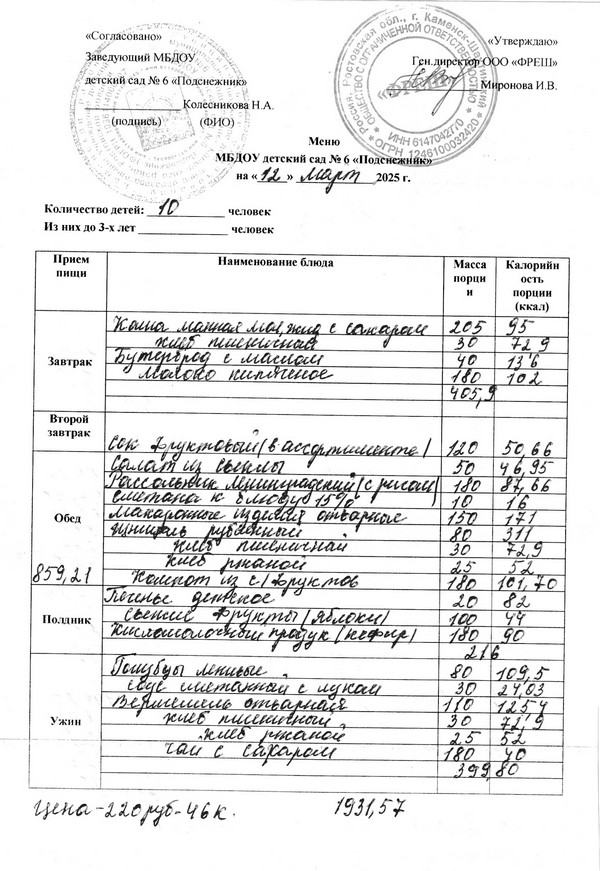 «Согласовано»
Заведующий МБДОУ
детский сад № 6 «Подснежник»
Колесникова Н.А.
(подпись) (ФИО)
«Утверждаю»
Ген.директор ООО «ФРЕШ»
Миронова И.В.
Ростовская обл., г. Каменск-Шахтинский
ОБЩЕСТВО С ОГРАНИЧЕННОЙ ОТВЕТСТВЕННОСТЬЮ
ИНН 6147042770
ОГРН 1246100032420
Меню
МБДОУ детский сад № 6 «Подснежник»
на «12» март 2025 г.
Количество детей: 10 человек
Из них до 3-х лет человек
Прием пищи Наименование блюда Масса порции Калорийность порции (ккал)
Завтрак
Каша манная мол, жид с сахаром 205 95
хлеб пшеничная 30 72 9
Бутерброд с маслом 40 136
молоко кипяченое 180 102
405,9
Второй завтрак
сок фруктовый (в ассортименте) 120 50,66
Обед
Салат из свеклы 50 46,95
Рассольник Ленинградский (с рисом) 180 87,66
сметана к блюду 15% 10 16
Макаронные изделия отварные 150 171
шницель рубленный 80 311
хлеб пшеничнай 30 72,9
хлеб ржаной 25 52
859,21
Компот из с/фруктов 180 101,70
Полдник
Печенье 20 82
свежие фрукты (яблоки) 100 44
Кисломолочный продук (кефир) 180 90
216
Ужин
Голубцы ленивые 80 109,5
соус сметанная с луком 30 24,03
Вермишель отварная 110 125 4
хлеб пшеничный 30 72,9
хлеб ржаной 25 52
чай с сахаром 180 40
399,80
Цена-220 руб-46 к. 1931,57